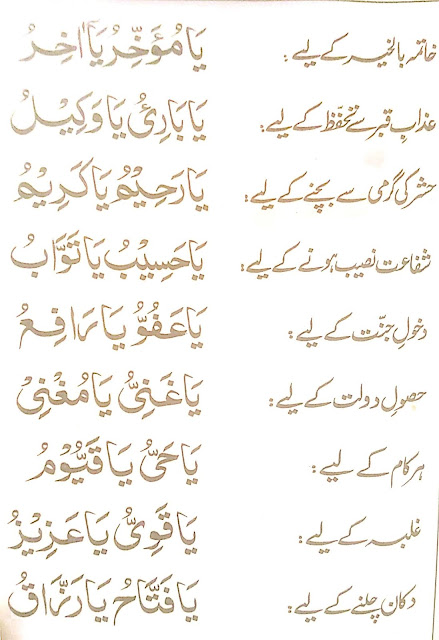 خاتمہ بالخیر کے لیے : یَا مُؤَخِّرُ یَا اٰخِرُ
عذابِ قبر سے تحفّظ کے لیے : یَا بَارِئُ یَا وَکِیْلُ
حشر کی گرمی سے بچنے کے لیے : یَا رَحِیْمُ یَا کَرِیْمُ
شفاعت نصیب ہونے کے لیے : یَا حَسِیْبُ یَا تَوَّابُ
دخولِ جنّت کے لیے : یَا عَفُوُّ یَا رَافِعُ
حصولِ دولت کے لیے : یَا غَنِیُّ یَا مُغْنِیْ
ہر کام کے لیے : یَا حَیُّ یَا قَیُّوْمُ
غلبہ کے لیے : یَا قَوِیُّ یَا عَزِیْزُ
دکان چلنے کے لیے : یَا فَتَّاحُ یَا رَزَّاقُ